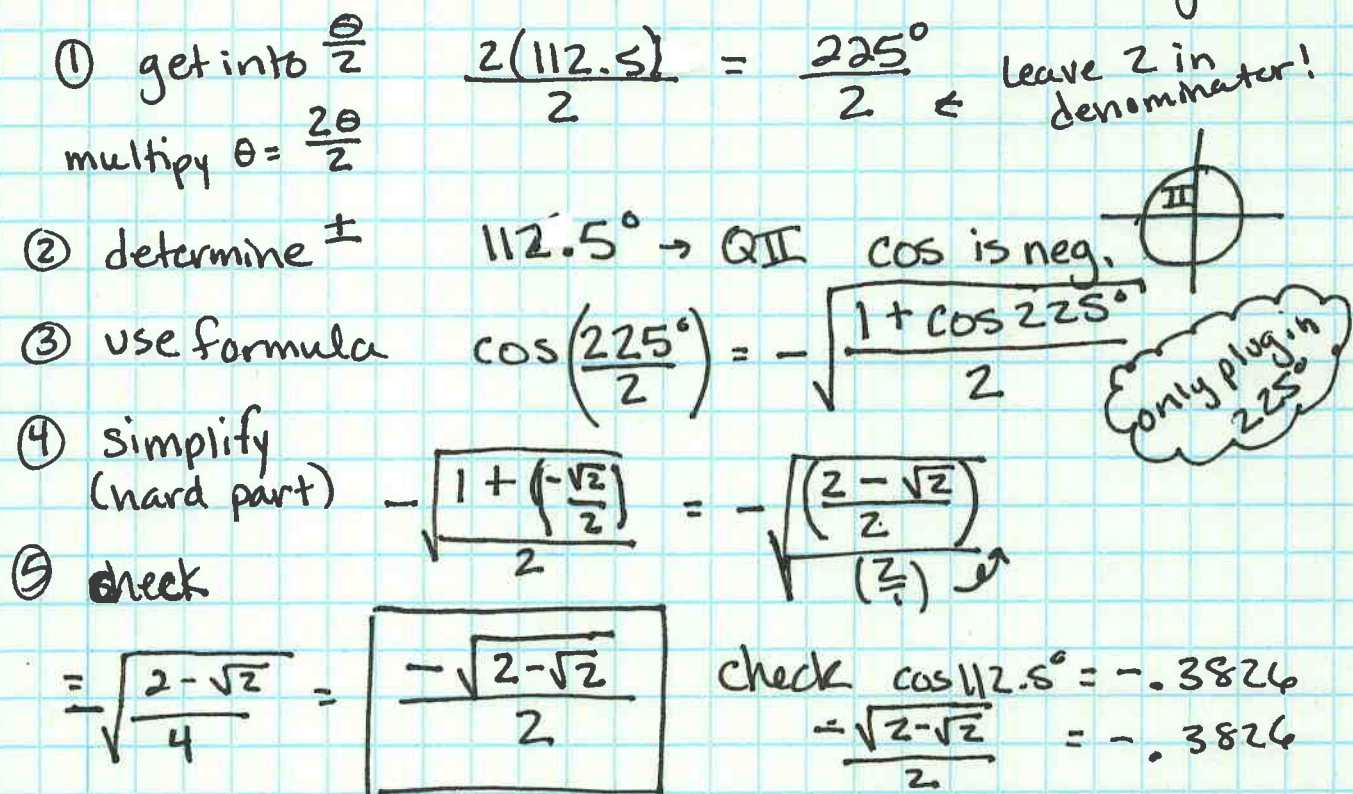 ① get into θ/2   2(112.5)/2 = 225°/2 ← Leave 2 in denominator!
multipy θ = 2θ/2
② determine ±   112.5° → QII   cos is neg.   II
③ use formula   cos(225°/2) = -√((1 + cos 225°)/2)   only plug in 225°
④ simplify
(hard part)   -√((1 + (-√2/2))/2) = -√(((2 - √2)/2)/(2/1))
⑤ check
= -√((2 - √2)/4) = -√(2-√2)/2   check cos 112.5° = -.3826
-√(2-√2)/2 = -.3826